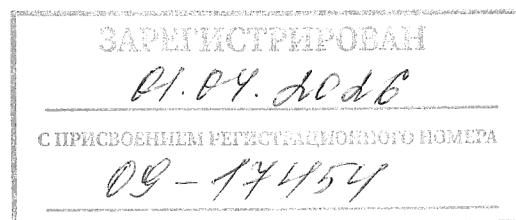 ЗАРЕГИСТРИРОВАН
01.04.2026
С ПРИСВОЕНИЕМ РЕГИСТРАЦИОННОГО НОМЕРА
09-17454